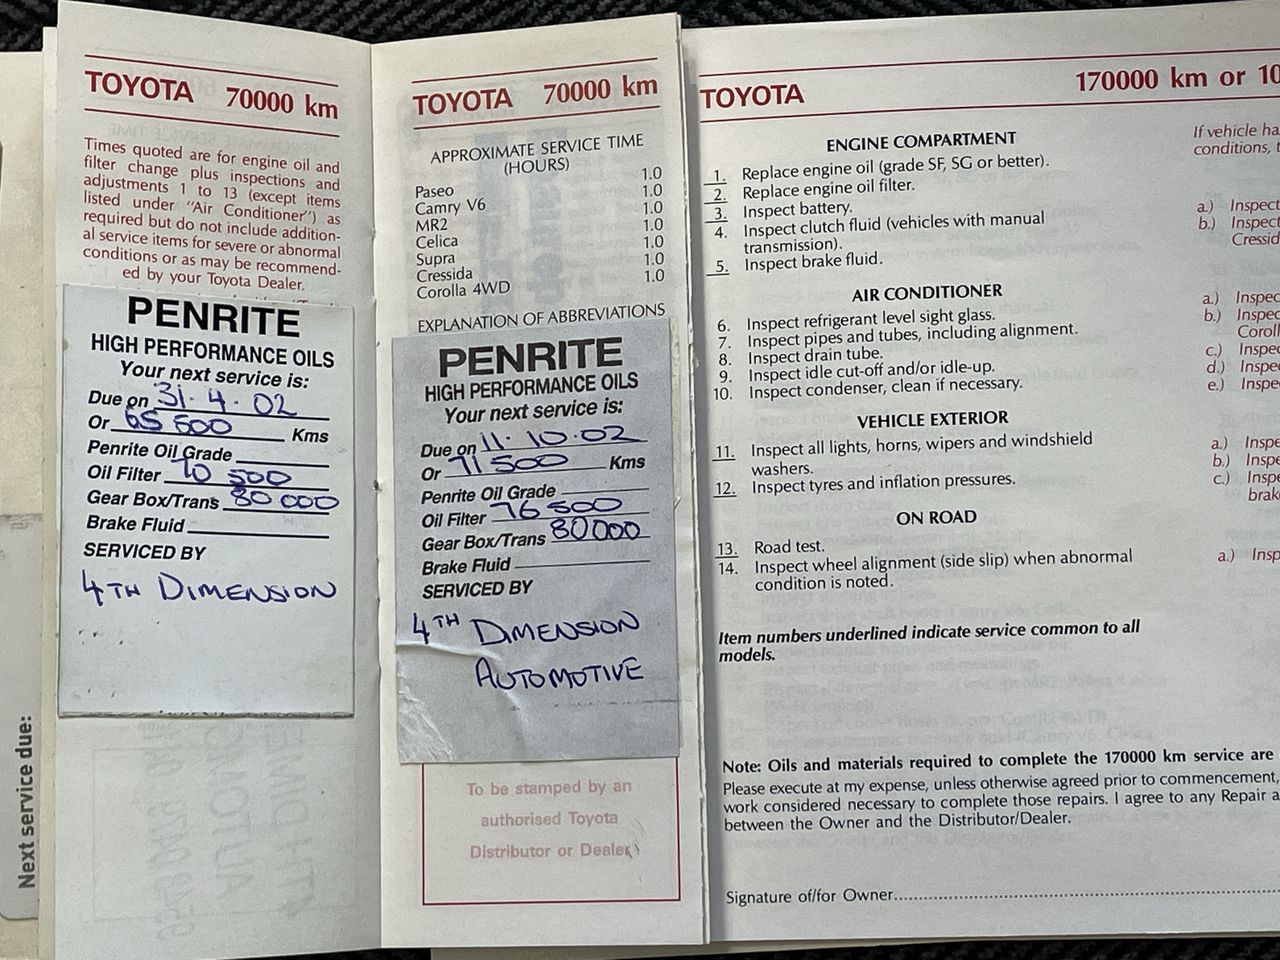 TOYOTA 70000 km
Times quoted are for engine oil and
filter change plus inspections and
adjustments 1 to 13 (except items
listed under "Air Conditioner") as
required but do not include addition-
al service items for severe or abnormal
conditions or as may be recommend-
ed by your Toyota Dealer.
PENRITE
HIGH PERFORMANCE OILS
Your next service is:
Due on 31·4·02
Or 65 500 Kms
Penrite Oil Grade
Oil Filter 70 500
Gear Box/Trans 80 000
Brake Fluid
SERVICED BY
4TH DIMENSION
Next service due:
TOYOTA 70000 km
APPROXIMATE SERVICE TIME
(HOURS)
Paseo 1.0
Camry V6 1.0
MR2 1.0
Celica 1.0
Supra 1.0
Cressida 1.0
Corolla 4WD 1.0
EXPLANATION OF ABBREVIATIONS
PENRITE
HIGH PERFORMANCE OILS
Your next service is:
Due on 11·10·02
Or 71 500 Kms
Penrite Oil Grade
Oil Filter 76 500
Gear Box/Trans 80000
Brake Fluid
SERVICED BY
4TH DIMENSION
AUTOMOTIVE
To be stamped by an
authorised Toyota
Distributor or Dealer
TOYOTA 170000 km or 10
ENGINE COMPARTMENT
1. Replace engine oil (grade SF, SG or better).
2. Replace engine oil filter.
3. Inspect battery.
4. Inspect clutch fluid (vehicles with manual
transmission).
5. Inspect brake fluid.
AIR CONDITIONER
6. Inspect refrigerant level sight glass.
7. Inspect pipes and tubes, including alignment.
8. Inspect drain tube.
9. Inspect idle cut-off and/or idle-up.
10. Inspect condenser, clean if necessary.
VEHICLE EXTERIOR
11. Inspect all lights, horns, wipers and windshield
washers.
12. Inspect tyres and inflation pressures.
ON ROAD
13. Road test.
14. Inspect wheel alignment (side slip) when abnormal
condition is noted.
Item numbers underlined indicate service common to all
models.
Note: Oils and materials required to complete the 170000 km service are
Please execute at my expense, unless otherwise agreed prior to commencement,
work considered necessary to complete those repairs. I agree to any Repair a
between the Owner and the Distributor/Dealer.
Signature of/for Owner
If vehicle ha
conditions, t
a.) Inspect
b.) Inspect
Cressid
a.) Inspec
b.) Inspec
Coroll
c.) Inspe
d.) Inspe
e.) Inspe
a.) Inspe
b.) Inspe
c.) Inspe
brak
a.) Insp